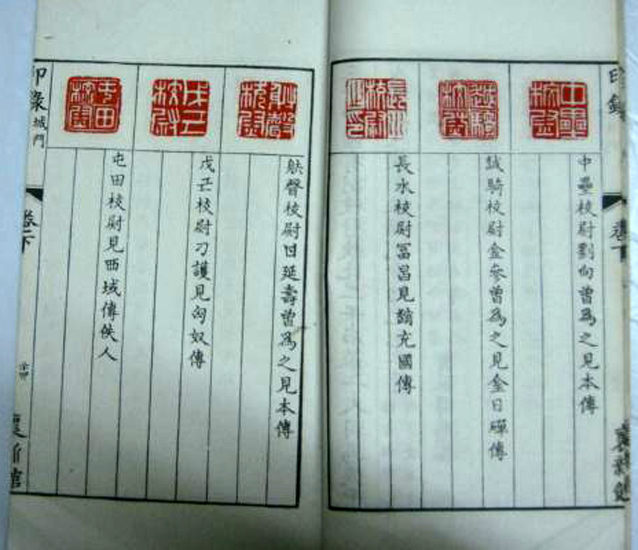 中壘校尉
中壘校尉劉向曾為之見本傳
越騎校尉
越騎校尉金參曾為之見金日磾傳
長水校尉
長水校尉冨昌見趙充國傳
射聲校尉
射聲校尉曰延壽曾為之見本傳
戊己校尉
戊己校尉刁護見匈奴傳
屯田校尉
屯田校尉見西域傳佚人
印錄
城門
卷二下